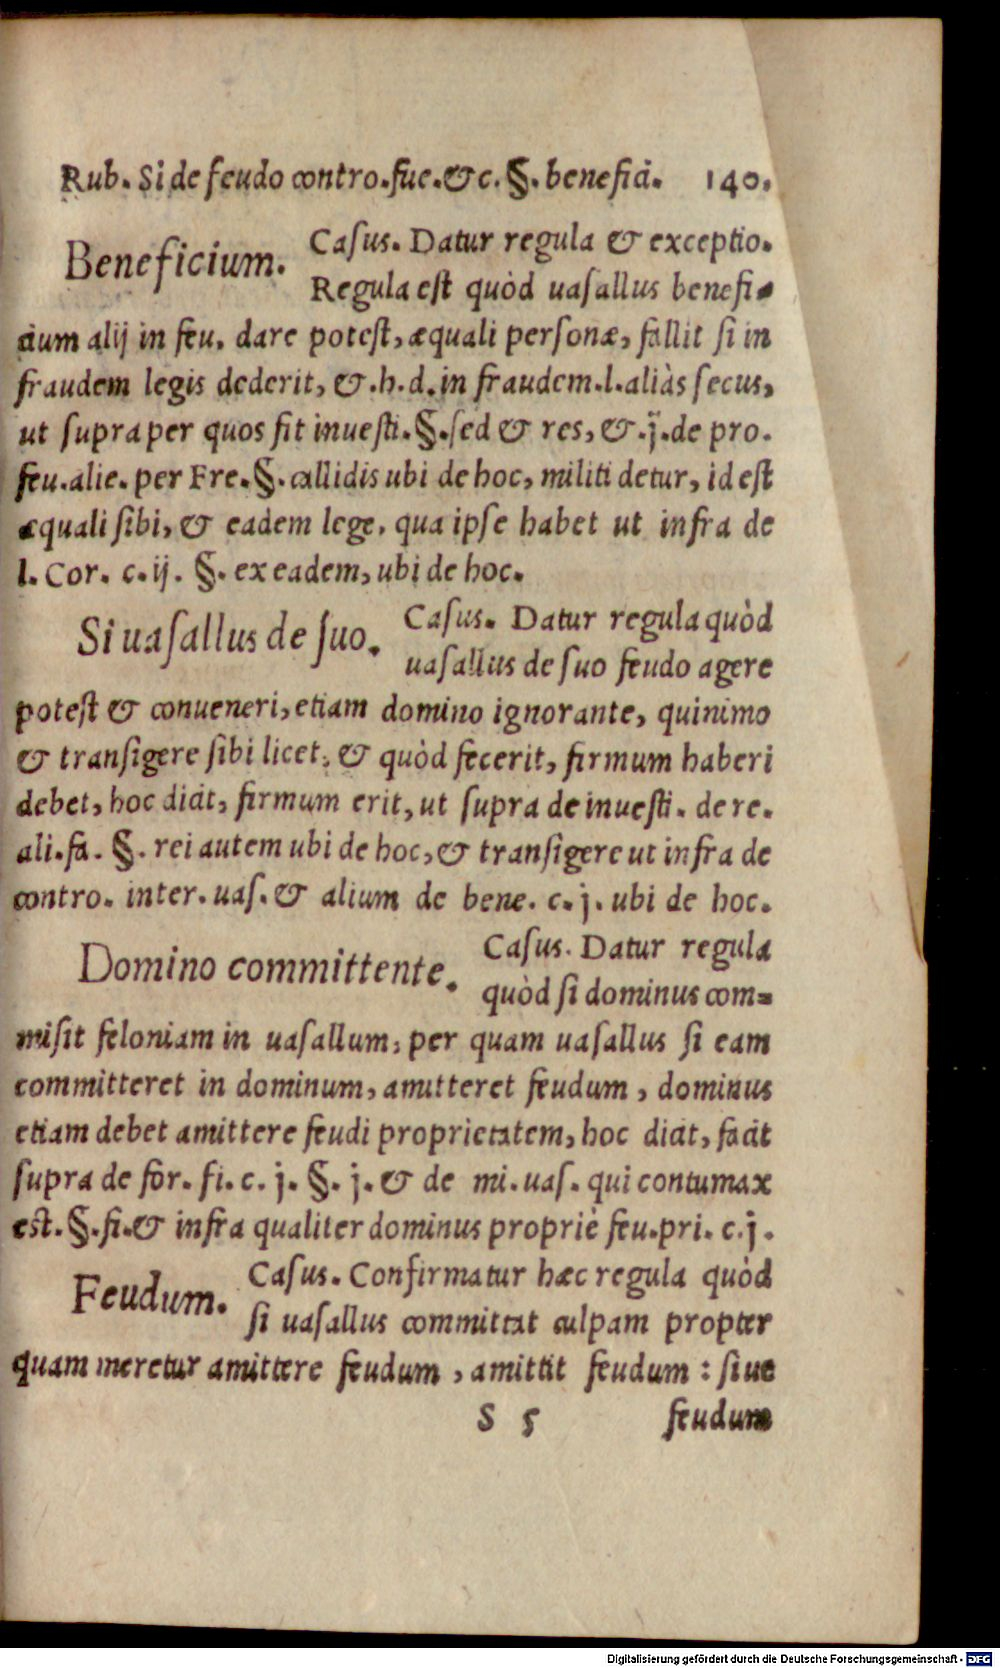 Rub. Si de feudo contro.fue.& c. §. beneficiū. 140.
Beneficium. Casus. Datur regula & exceptio.
Regula est quòd uasallus benefi-
cium alij in feu. dare potest, æquali personæ, fallit si in
fraudem legis dederit, &.h.d.in fraudem.l.aliàs secus,
ut supra per quos fit inuesti.§.sed & res, &.j.de pro.
feu.alie. per Fre.§.callidis ubi de hoc, militi detur, id est
æquali sibi, & eadem lege, qua ipse habet ut infra de
l. Cor. c.ij. §. ex eadem, ubi de hoc.
Si uasallus de suo. Casus. Datur regula quòd
uasallus de suo feudo agere
potest & conueneri, etiam domino ignorante, quinimo
& transigere sibi licet, & quòd fecerit, firmum haberi
debet, hoc dicit, firmum erit, ut supra de inuesti. de re.
ali.fa. §. rei autem ubi de hoc, & transigere ut infra de
contro. inter. uas. & alium de bene. c. j. ubi de hoc.
Domino committente. Casus. Datur regula
quòd si dominus com-
misit feloniam in uasallum, per quam uasallus si eam
committeret in dominum, amitteret feudum, dominus
etiam debet amittere feudi proprietatem, hoc dicit, facit
supra de for. fi. c. j. §. j. & de mi. uas. qui contumax
est. §. fi. & infra qualiter dominus propriè feu.pri. c.j.
Feudum. Casus. Confirmatur hæc regula quòd
si uasallus committat culpam propter
quam meretur amittere feudum, amittit feudum: siue
S 5 feudum
Digitalisierung gefördert durch die Deutsche Forschungsgemeinschaft - DFG